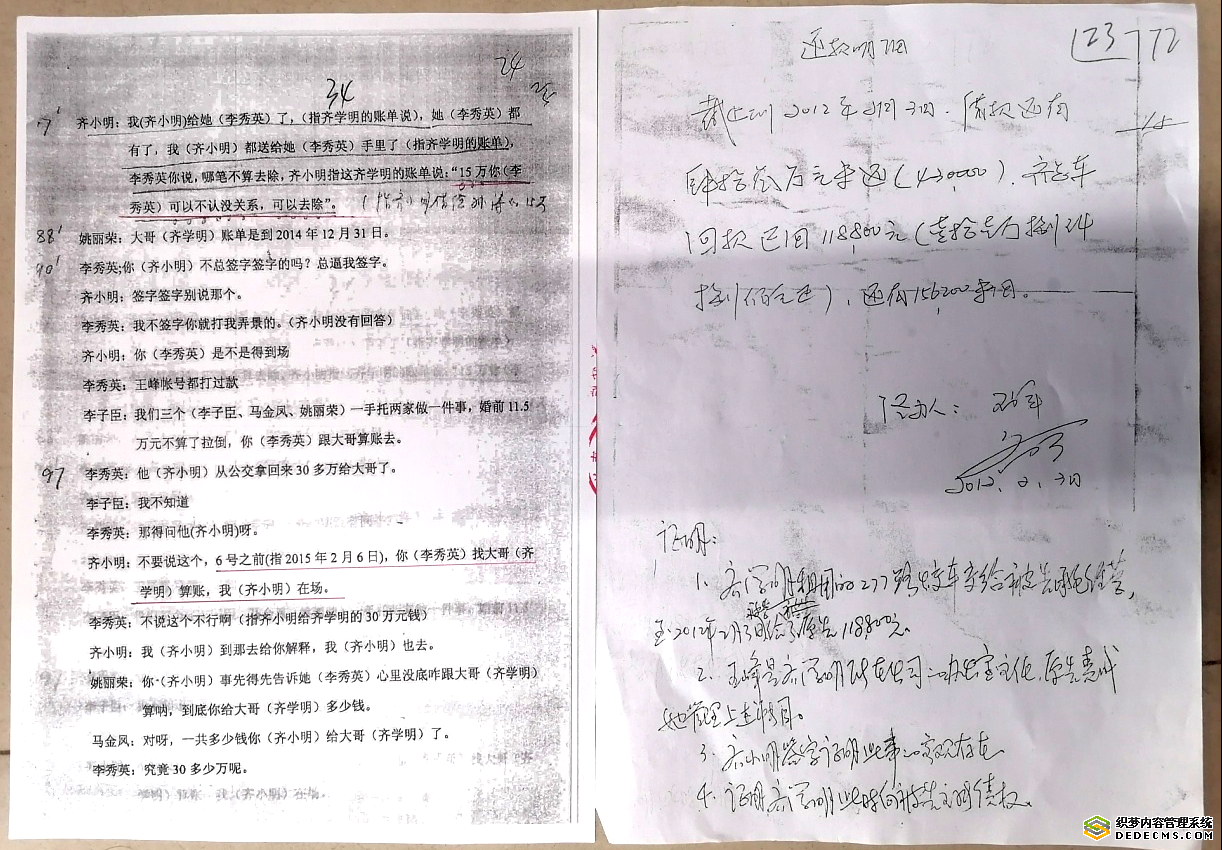 34
24
齐小明：我(齐小明)给她（李秀英）了，（指齐学明的账单说），她（李秀英）都
有了，我（齐小明）都送给她（李秀英）手里了（指齐学明的账单），
李秀英你说，哪笔不算去除，齐小明指这齐学明的账单说：“15万你（李
秀英）可以不认没关系，可以去除”。
88'
姚丽荣：大哥（齐学明）账单是到2014年12月31日。
90'
李秀英;你（齐小明）不总签字签字的吗？总逼我签字。
齐小明：签字签字别说那个。
李秀英：我不签字你就打我弄景的。（齐小明没有回答）
齐小明：你（李秀英）是不是得到场
李秀英：王峰帐号都打过款
李子臣：我们三个（李子臣、马金凤、姚丽荣）一手托两家做一件事，婚前11.5
万元不算了拉倒，你（李秀英）跟大哥算账去。
97
李秀英：他（齐小明）从公交拿回来30多万给大哥了。
李子臣：我不知道
李秀英：那得问他(齐小明)呀。
齐小明：不要说这个，6号之前(指2015年2月6日)，你（李秀英）找大哥（齐
学明）算账，我（齐小明）在场。
李秀英：不说这个不行啊（指齐小明给齐学明的30万元钱）
齐小明：我（齐小明）到那去给你解释，我（齐小明）也去。
姚丽荣：你（齐小明）事先得先告诉她（李秀英）心里没底咋跟大哥（齐学明）
算呐，到底你给大哥（齐学明）多少钱。
马金凤：对呀，一共多少钱你（齐小明）给大哥（齐学明）了。
李秀英：究竟30多少万呢。
还款明细
123 72
截止到2012年2月3日，借款还有
肆拾叁万元未还（430,000）.
回款已回118800元（壹拾壹万捌仟
捌佰元正），还有156200未回。
经办人：
2012.2.3日
证明：
1、齐学明租用的277路公交车交给被告承包经营，
至2012年2月3日给了原告118800元。
2、王峰是齐学明所在公司办公室文化，原告责成
她管理上述账目。
3、齐小明签字证明此事的客观存在
4、证明齐学明此时向被告主明债权。
织梦内容管理系统
DEDECMS.COM